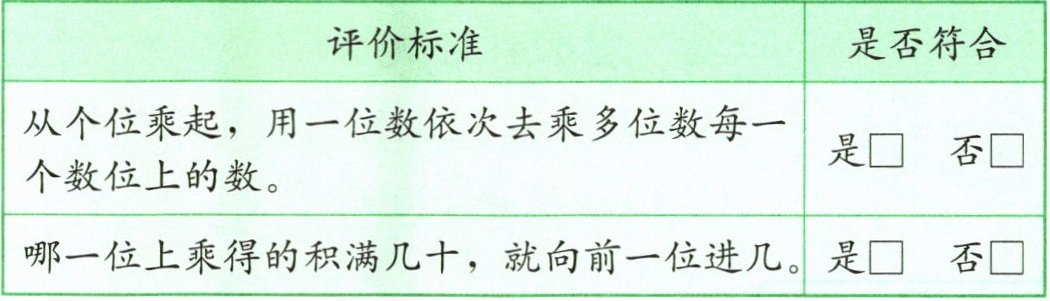 评价标准 是否符合
从个位乘起，用一位数依次去乘多位数每一
个数位上的数。
是□ 否□
哪一位上乘得的积满几十，就向前一位进几。 是□ 否□